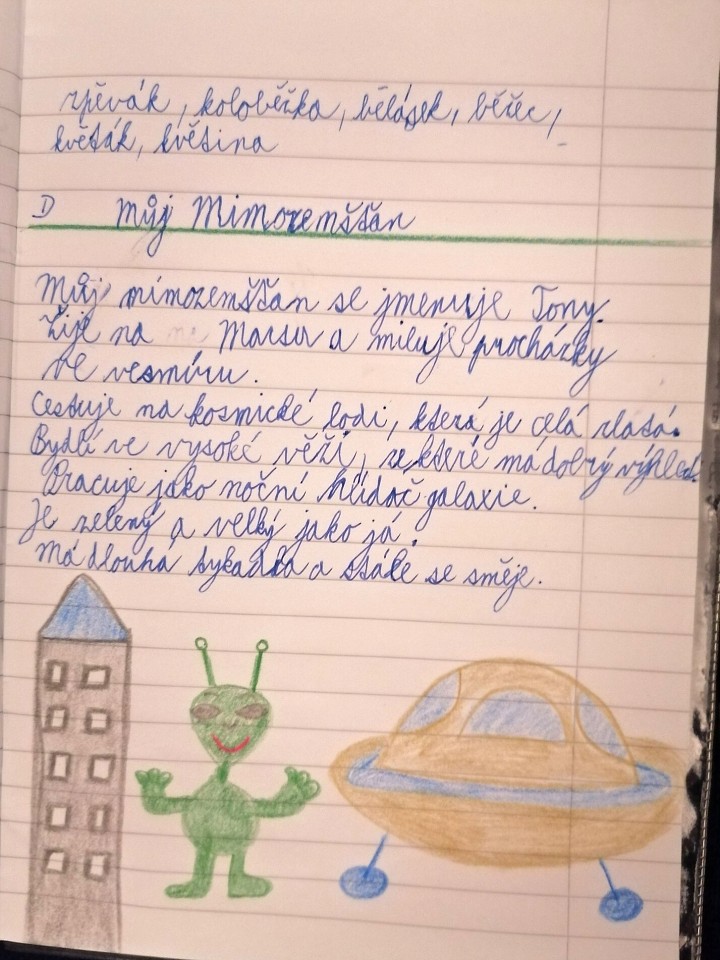 zpěvák, koloběžka, bělásek, běžec,
květák, květina
D Můj Mimozemšťan
Můj mimozemšťan se jmenuje Tony.
Žije na Marsu a miluje procházky
ve vesmíru.
Cestuje na kosmické lodi, která je celá zlatá.
Bydlí ve vysoké věži, ze které má dobrý výhled.
Pracuje jako noční hlídač galaxie.
Je zelený a velký jako já.
Má dlouhá tykadla a stále se směje.